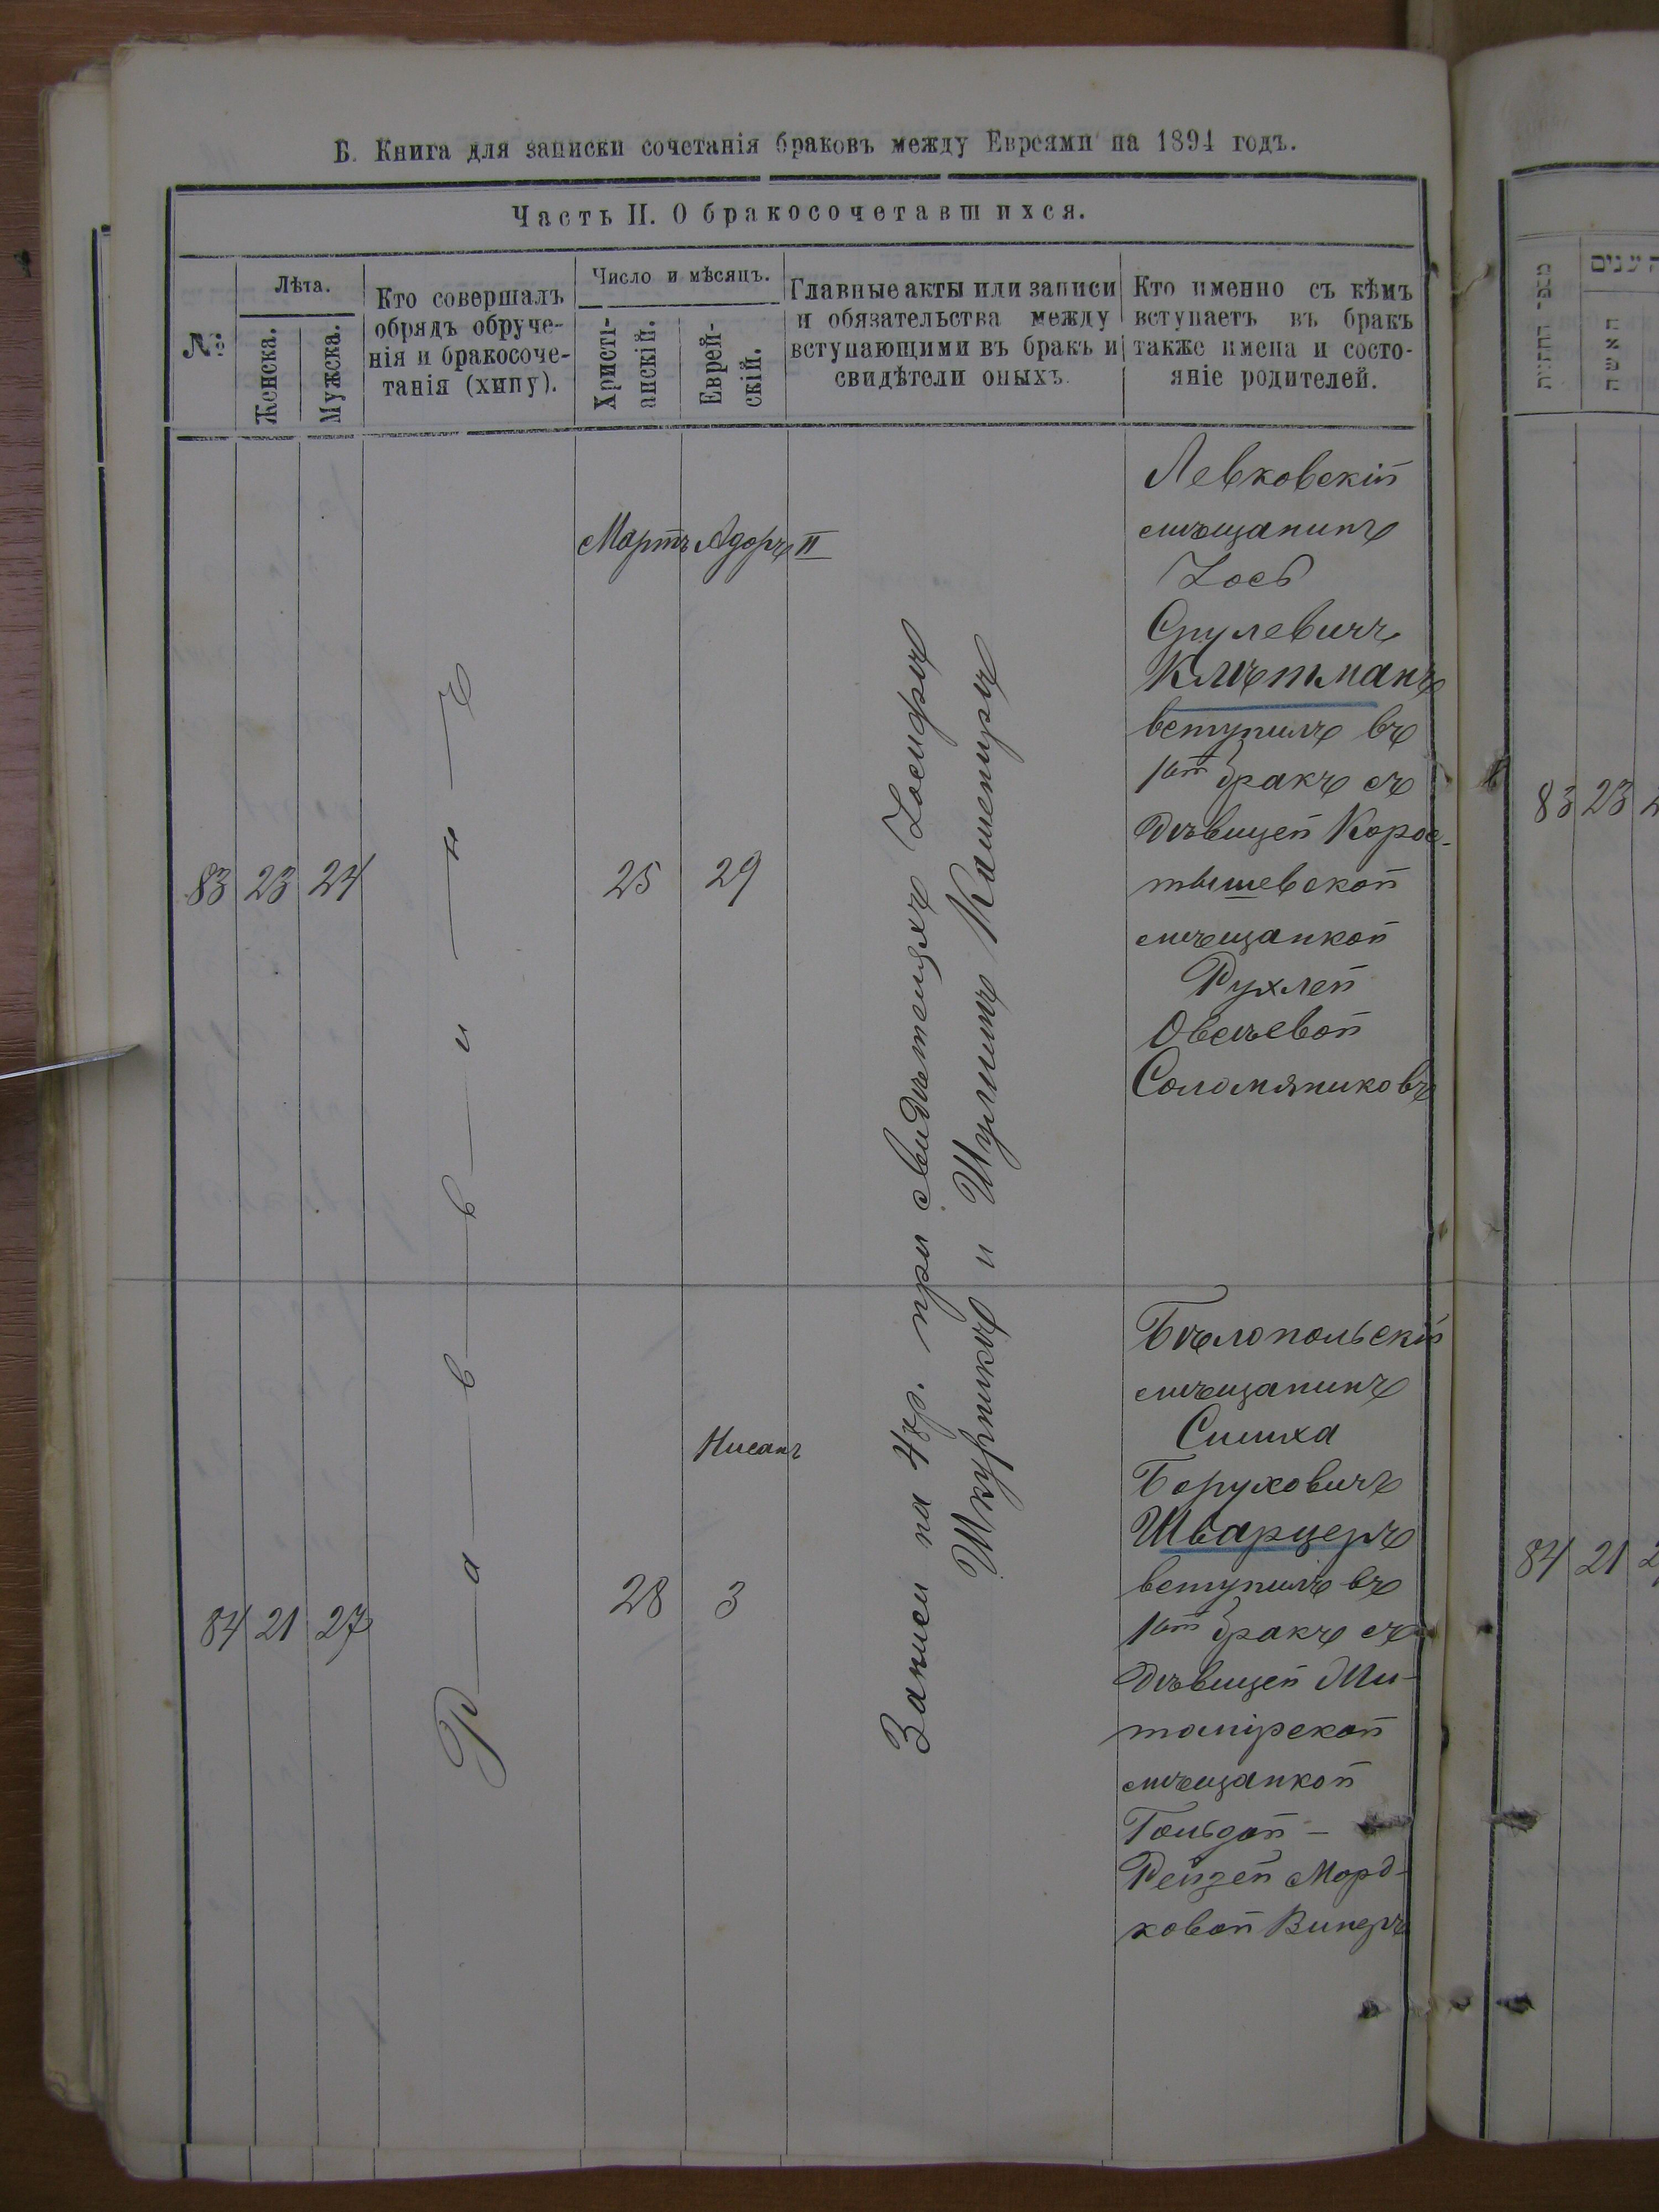 Б. Книга для записки сочетанія браковъ между Евреями на 1894 годъ.
Часть II. О бракосочетавшихся.
№
Лѣта.
Женска.
Мужска.
Кто совершалъ
обрядъ обруче-
нія и бракосоче-
танія (хипу).
Число и мѣсяцъ.
Христі-
анскій.
Еврей-
скій.
Главные акты или записи
и обязательства между
вступающими въ бракъ и
свидѣтели оныхъ.
Кто именно съ кѣмъ
вступаетъ въ бракъ
также имена и состо-
яніе родителей.
Мартъ Адаръ II
83 23 24
25 29
Левковскій
мѣщанинъ
Іось
Срулевичъ
Клѣтманъ
вступилъ въ
1ый бракъ съ
дѣвицей Корос-
тышевской
мѣщанкой
Рухлей
Овсѣевой
Соломяниковъ
Раввинъ
Записи на 4 р. при свидѣтеляхъ Іосифѣ
Шкурникѣ и Шулимѣ Кашепирѣ
Нисанъ
84 21 27
28 3
Бѣлопольскій
мѣщанинъ
Симха
Боруховичъ
Шварцеръ
вступилъ въ
1ый бракъ съ
дѣвицей Жи-
томірской
мѣщанкой
Гольдой-
Рейзей Морд-
ковой Винеръ
מספר החתונות
האשה
83 23
84 21